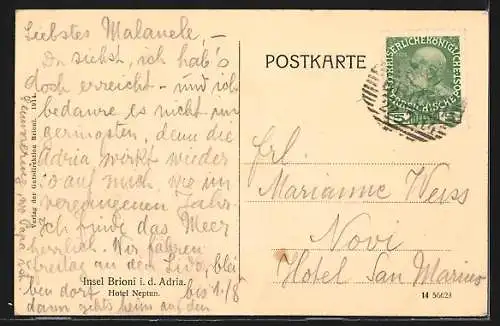 Liebstes Malanele, –
Du siehst, ich hab's
doch erreicht – und ich
bedaure es nicht im
geringsten, denn die
Adria wirkt wieder
so auf mich wie im
vergangenen Jahr.
Ich finde das Meer
herrlich. Wir fahren
Freitag an den Lido, blei
ben dort bis 1./8
dann gehts heim auf den
Verlag der Gutsdirektion Brioni. 1914.
Insel Brioni i. d. Adria.
Hotel Neptun.
POSTKARTE
KAISERLICHE KÖNIGLICHE
ÖSTERREICHISCHE
Frl.
Marianne Weiss
Novi
Hotel San Marino
14 56623